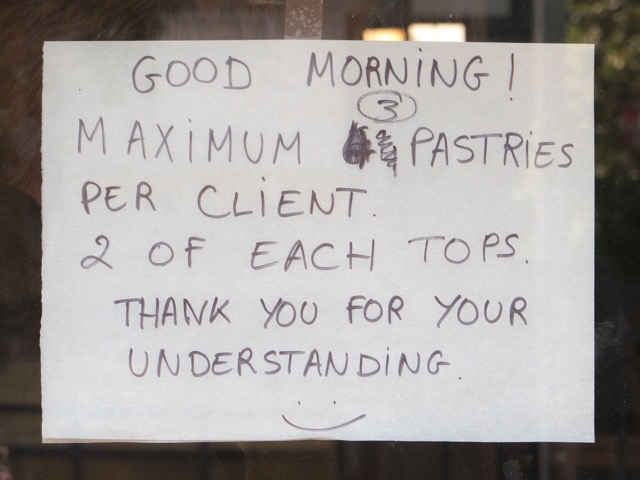 GOOD MORNING!
3
MAXIMUM PASTRIES
PER CLIENT.
2 OF EACH TOPS.
THANK YOU FOR YOUR
UNDERSTANDING.